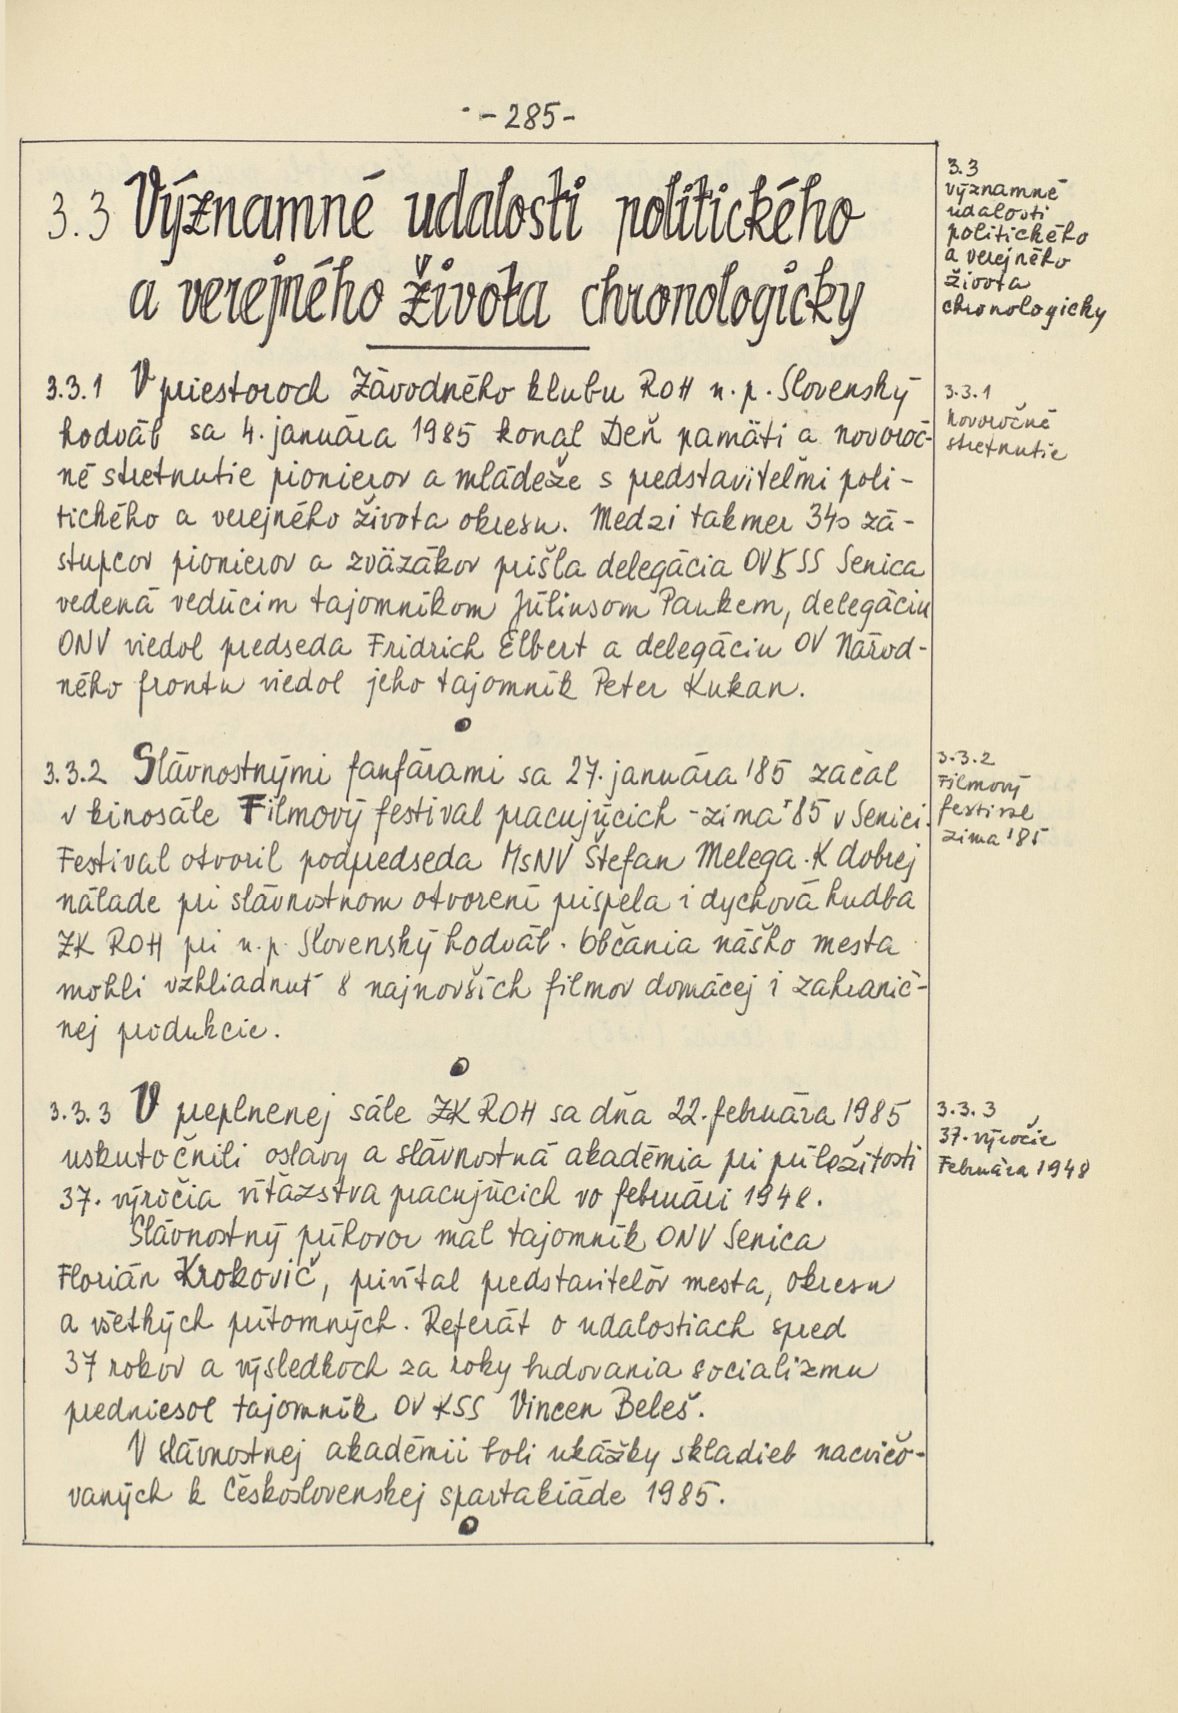 - 285 -
3.3 Významné udalosti politického
a verejného života chronologicky
3.3
významné
udalosti
politického
a verejného
života
chronologicky
3.3.1 V priestoroch Závodného klubu ROH n.p. Slovenský
hodváb sa 4. januára 1985 konal Deň pamäti a novoroč-
né stretnutie pionierov a mládeže s predstaviteľmi poli-
tického a verejného života okresu. Medzi takmer 340 zá-
stupcov pionierov a zväzákov prišla delegácia OV KSS Senica
vedená vedúcim tajomníkom Júliusom Paukem, delegáciu
ONV viedol predseda Fridrich Elbert a delegáciu OV Národ-
ného frontu viedol jeho tajomník Peter Kukan.
3.3.1
Novoročné
stretnutie
3.3.2 Slávnostnými fanfárami sa 27. januára '85 začal
v kinosále Filmový festival pracujúcich - zima '85 v Senici.
Festival otvoril podpredseda MsNV Štefan Melega. K dobrej
nálade pri slávnostnom otvorení prispela i dychová hudba
ZK ROH pri n.p. Slovenský hodváb. Občania nášho mesta
mohli vzhliadnuť 8 najnovších filmov domácej i zahranič-
nej produkcie.
3.3.2
Filmový
festival
zima '85
3.3.3 V preplnenej sále ZK ROH sa dňa 22. februára 1985
uskutočnili oslavy a slávnostná akadémia pri príležitosti
37. výročia víťazstva pracujúcich vo februári 1948.
Slávnostný príhovor mal tajomník ONV Senica
Florián Krokovič, privítal predstaviteľov mesta, okresu
a všetkých prítomných. Referát o udalostiach spred
37 rokov a výsledkoch za roky budovania socializmu
predniesol tajomník OV KSS Vincen Beleš.
V slávnostnej akadémii boli ukážky skladieb nacvičo-
vaných k Československej spartakiáde 1985.
3.3.3
37. výročie
Februára 1948